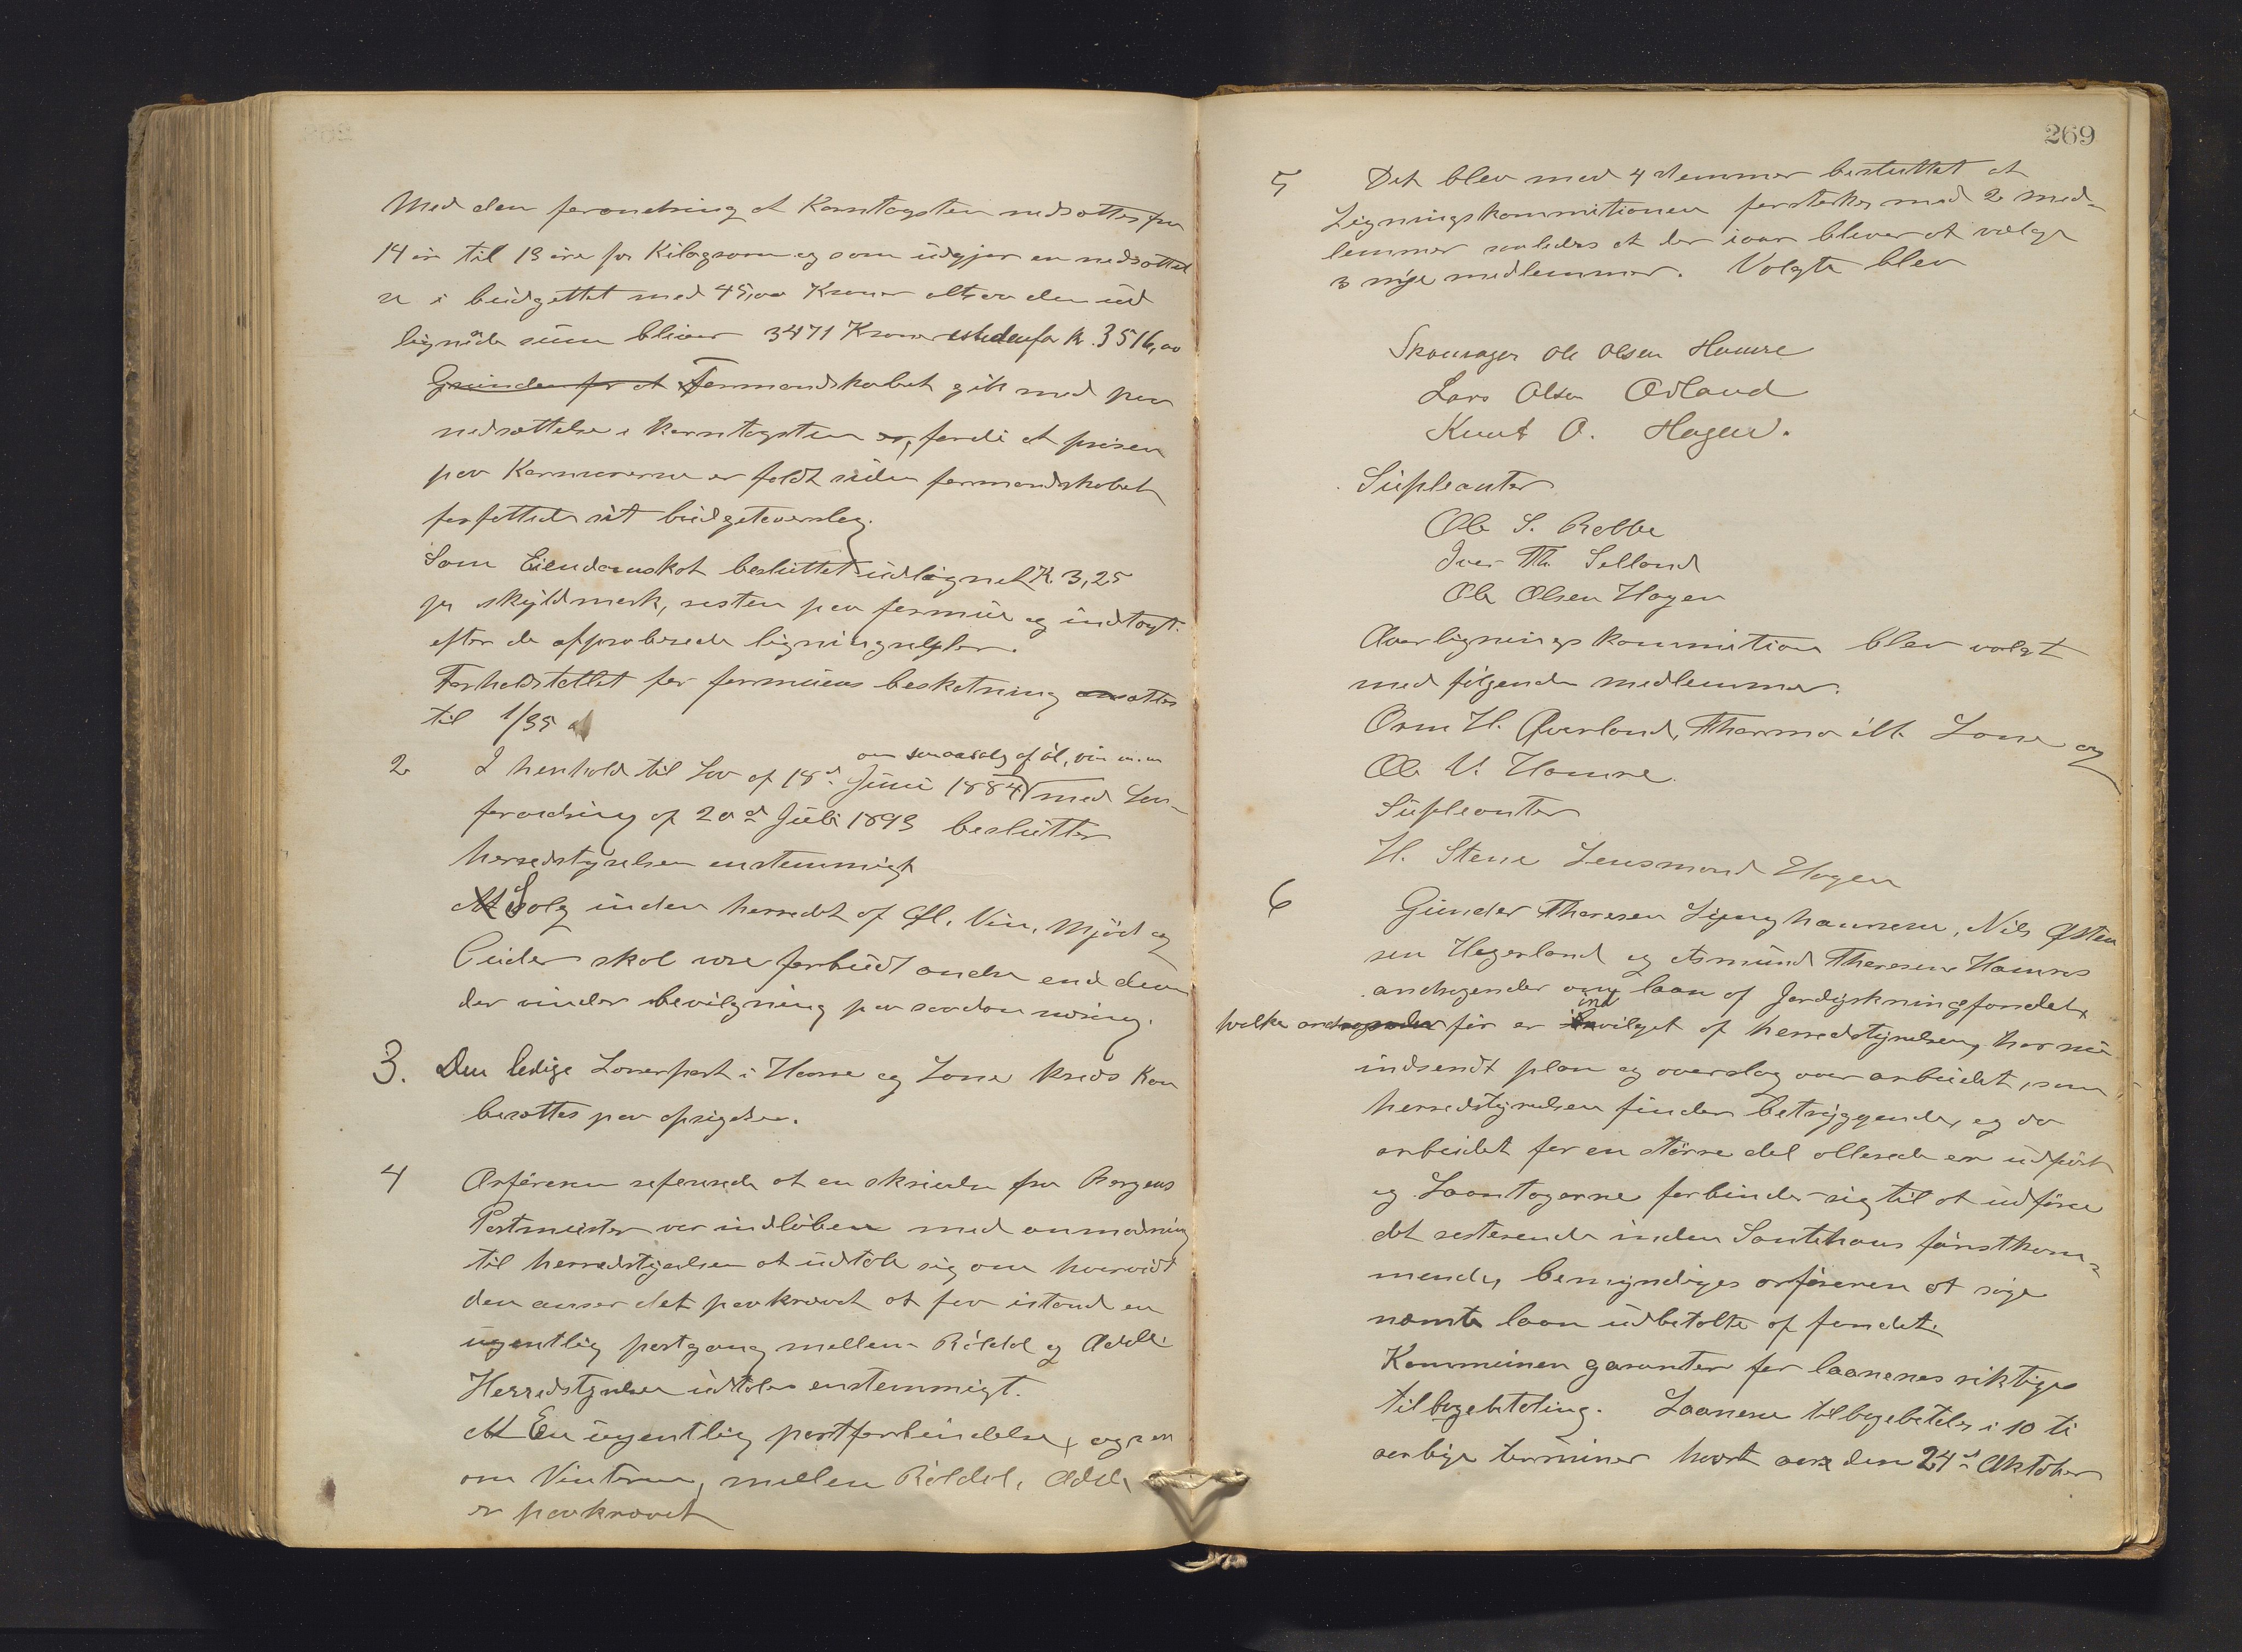 Med den forandring at Korntagsten nedsættes fra
14 øre til 13 øre pr Kilogram og som udgjør en nedsættel
se i budgettet med 45,00 Kroner altsaa den ud
lignede sum bliver 3471 Kroner istedenfor Kr. 3516,00
Grunden for at Formandskabet gik med paa
nedsættelse i Korntagsten er, fordi at prisen
paa Kornvarerne er faldt siden formandskabet
forfattede sit budgetoverslag.
Som Eiendomskat besluttet udlignet Kr. 3,25
pr skyldmark, resten paa formue og indtægt
efter de approberede ligningsregler.
Forholdstallet for formuens beskatning ansættes
til 1/35
om smaasalg af øl, vin m.m
2 I henhold til Lov af 18d Juni 1884 med Lov-
forandring af 20d Juli 1893 beslutter
herredstyrelsen enstemmigt
At Salg inden herredet af Øl, Vin, Mjød og
Cider skal være forbudt andre end dem
der vinder bevilgning paa saadan næring.
3. Den ledige Lærerpost i Hamre og Lone kreds kan
besættes paa opsigelse.
4 Ordføreren refererede at en skrivelse fra Bergens
Postmester var indløben med anmodning
til herredstyrelsen at udtale sig om hvorvidt
den anser det paakrævet at faa istand en
ugentlig postgang mellem Røldal og Odde
Herredstyrelsen udtaler enstemmigt.
At En ugentlig postforbindelse, ogsaa
om Vinteren, mellem Røldal, Odde,
er paakrævet
269
5 Det blev med 4 stemmer besluttet at
Ligningskommitionen forsterkes med 2 med-
lemmer saaledes at der iaar bliver at vælge
3 nye medlemmer. Valgte blev
Skomager Ole Olsen Hamre
Lars Olsen Odland
Knut O. Hagen.
Supleanter
Ole S. Rabbe
Iver Th. Selland
Ole Olsen Hagen
Overligningskommition blev valgt
med følgende medlemmer.
Orm H. Øverland, Thormo Lone og
Ole V. Hamre.
Supleanter
H. Stene Lensmand Hagen
6 Gunder Thoresen Ljunghausene, Nils Østen
sen Hegerland og Asmund Thoresen Hamres
andragender om laan af Jorddyrkningsfondet,
ind
hvilke andragender før er bevilget af herredstyrelsen, har nu
indsendt plan og overslag over arbeidet, som
herredstyrelsen finder betryggende, og da
arbeidet for en større del allerede er udført
og Laantagerne forbinder sig til at udføre
det resterende inden Santehans førstkom-
mende, bemyndiges ordføreren at søge
nævnte laan udbetalte af fondet.
Kommunen garanterer for laanenes riktige
tilbagebetaling. Laanene tilbagebetales i 10 ti
aarlige terminer hvert aar den 24d Oktober